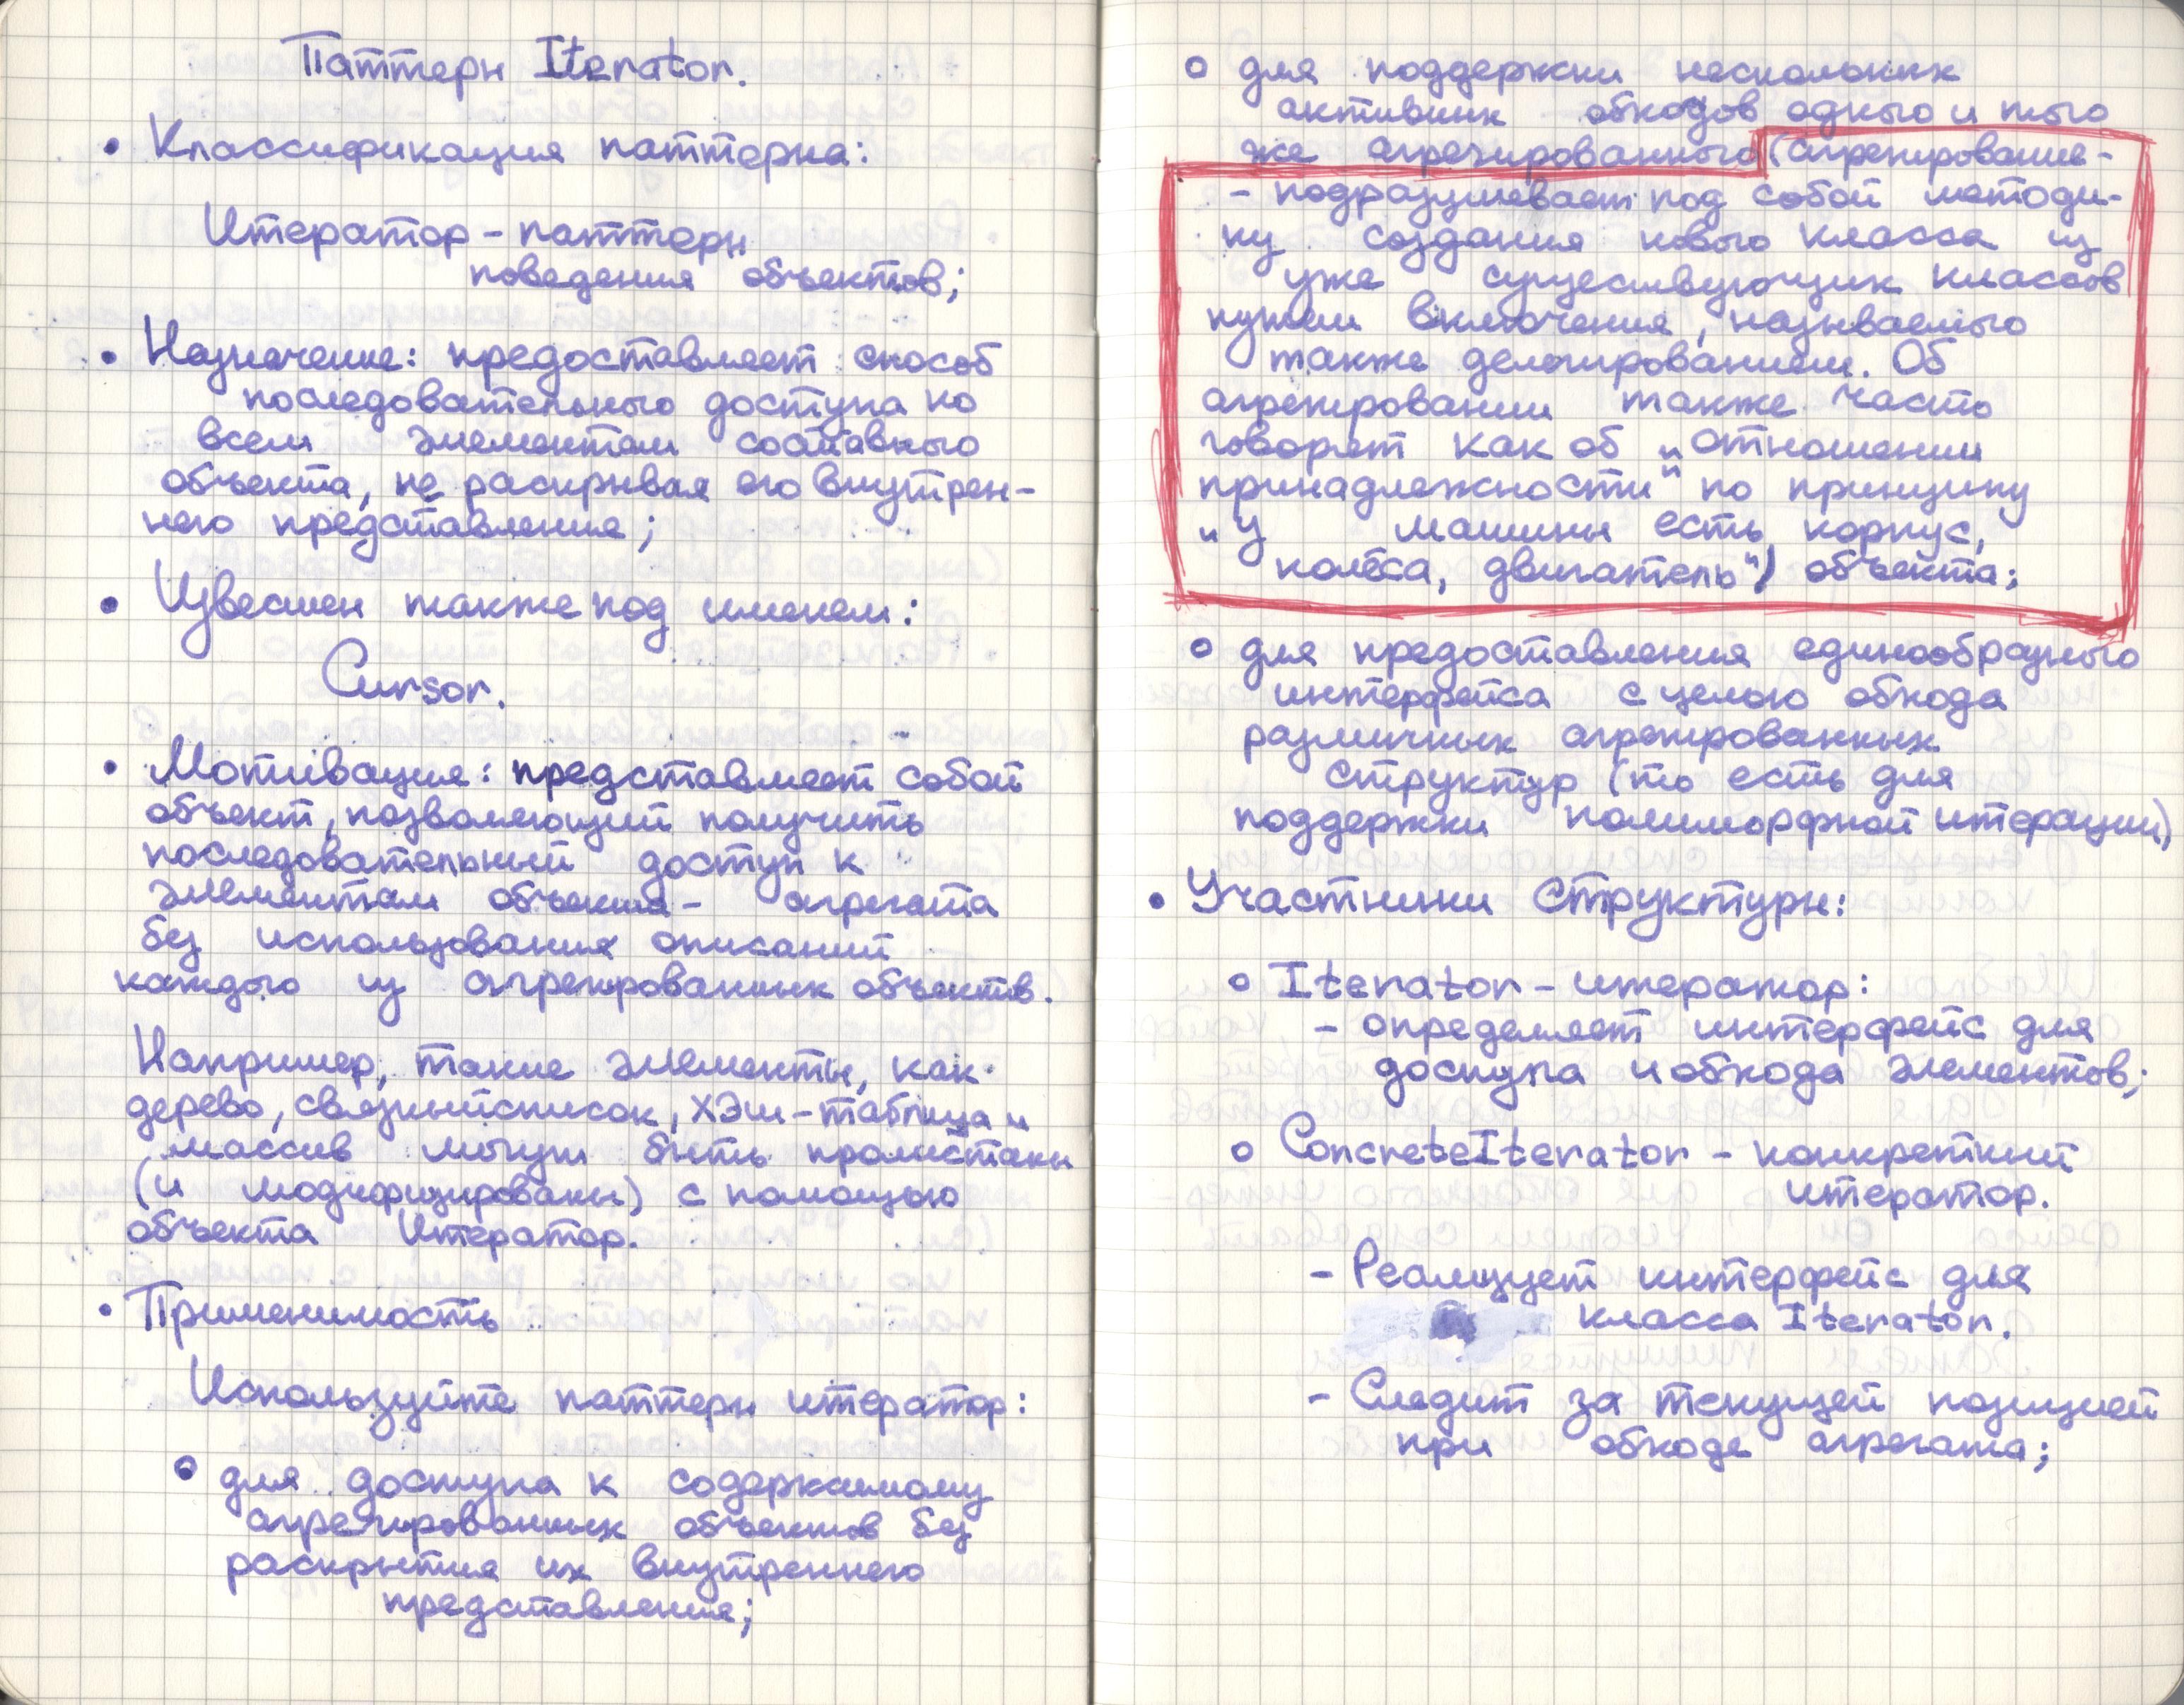 Паттерн Iterator.
• Классификация паттерна:
Итератор - паттерн
поведения объектов;
• Назначение: предоставляет способ
последовательного доступа ко
всем элементам составного
объекта, не раскрывая его внутрен-
него представления;
• Известен также под именем:
Cursor.
• Мотивация: представляет собой
объект, позволяющий получить
последовательный доступ к
элементам объекта - агрегата
без использования описаний
каждого из агрегированных объектов.
Например, такие элементы, как
дерево, связный список, хэш-таблица и
массив могут быть пролистаны
(и модифицированы) с помощью
объекта Итератор.
• Применимость
Используйте паттерн итератор:
• для доступа к содержимому
агрегированных объектов без
раскрытия их внутреннего
представления;
○ для поддержки нескольких
активных обходов одного и того
же агрегированного (агрегирование -
- подразумевает под собой методи-
ку создания нового класса из
уже существующих классов
путем включения, называемого
также делегированием. Об
агрегировании также часто
говорят как об „отношении
принадлежности" по принципу
„У машины есть корпус,
колёса, двигатель") объекта;
○ для предоставления единообразного
интерфейса с целью обхода
различных агрегированных
структур (то есть для
поддержки полиморфной итерации)
• Участники структуры:
○ Iterator - итератор:
- определяет интерфейс для
доступа и обхода элементов;
○ ConcreteIterator - конкретный
итератор.
- Реализует интерфейс для
класса Iterator.
- Следит за текущей позицией
при обходе агрегата;